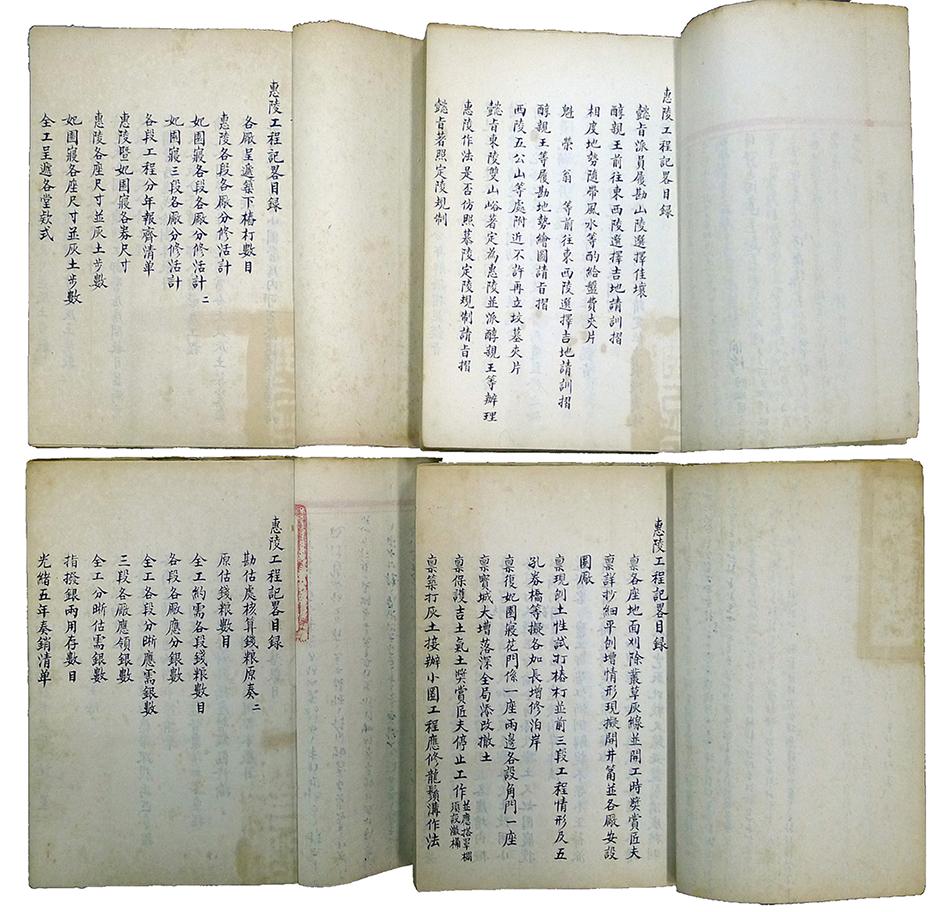 惠陵工程記畧目録
懿㫖派員履勘山陵選擇佳壤
醇親王前往東西陵選擇吉地請訓摺
相度地勢隨帶風水等酌給盤費夾片
魁 榮 翁 等前往東西陵選擇吉地請訓摺
醇親王等履勘地勢繪圖請㫖摺
西陵五公山等處附近不許再立坟墓夾片
懿㫖東陵雙山峪著定為惠陵並派醇親王等辦理
惠陵作法是否仿照慕陵定陵規制請㫖摺
懿㫖著照定陵規制
惠陵工程記畧目録
各廠呈遞築下樁打數目
惠陵各段各廠分修活計
妃園寢各段各廠分修活計二
妃園寢三段各廠分修活計
各段工程分年報齊清单
惠陵暨妃園寢各券尺寸
惠陵各座尺寸並灰土步數
妃園寢各座尺寸並灰土步數
全工呈遞各堂欵式
惠陵工程記畧目録
稟各座地面刈除叢草灰線並開工時獎賞匠夫
稟詳抄細平刨增情形現擬開井筩並各廠安設
圍廠
稟現刨土性試打樁打並前三段工程情形及五
孔券橋等擬各加長增修泊岸
稟復妃園寢花門係一座兩邊各設角門一座
稟寶城大增落深全局添改撤土
稟保護吉土氣土獎賞匠夫停止工作並應搭罩棚須設激桶
稟築打灰土接辦小圓工程應修龍鬚溝作法
惠陵工程記畧目録
勘估處核算錢粮原奏二
原估錢粮數目
全工約需各段錢粮數目
各段各廠應分銀數
全工各段分晰應需銀數
三段各廠應領銀數
全工分晰估需銀數
指撥銀兩用存數目
光緒五年奏銷清单